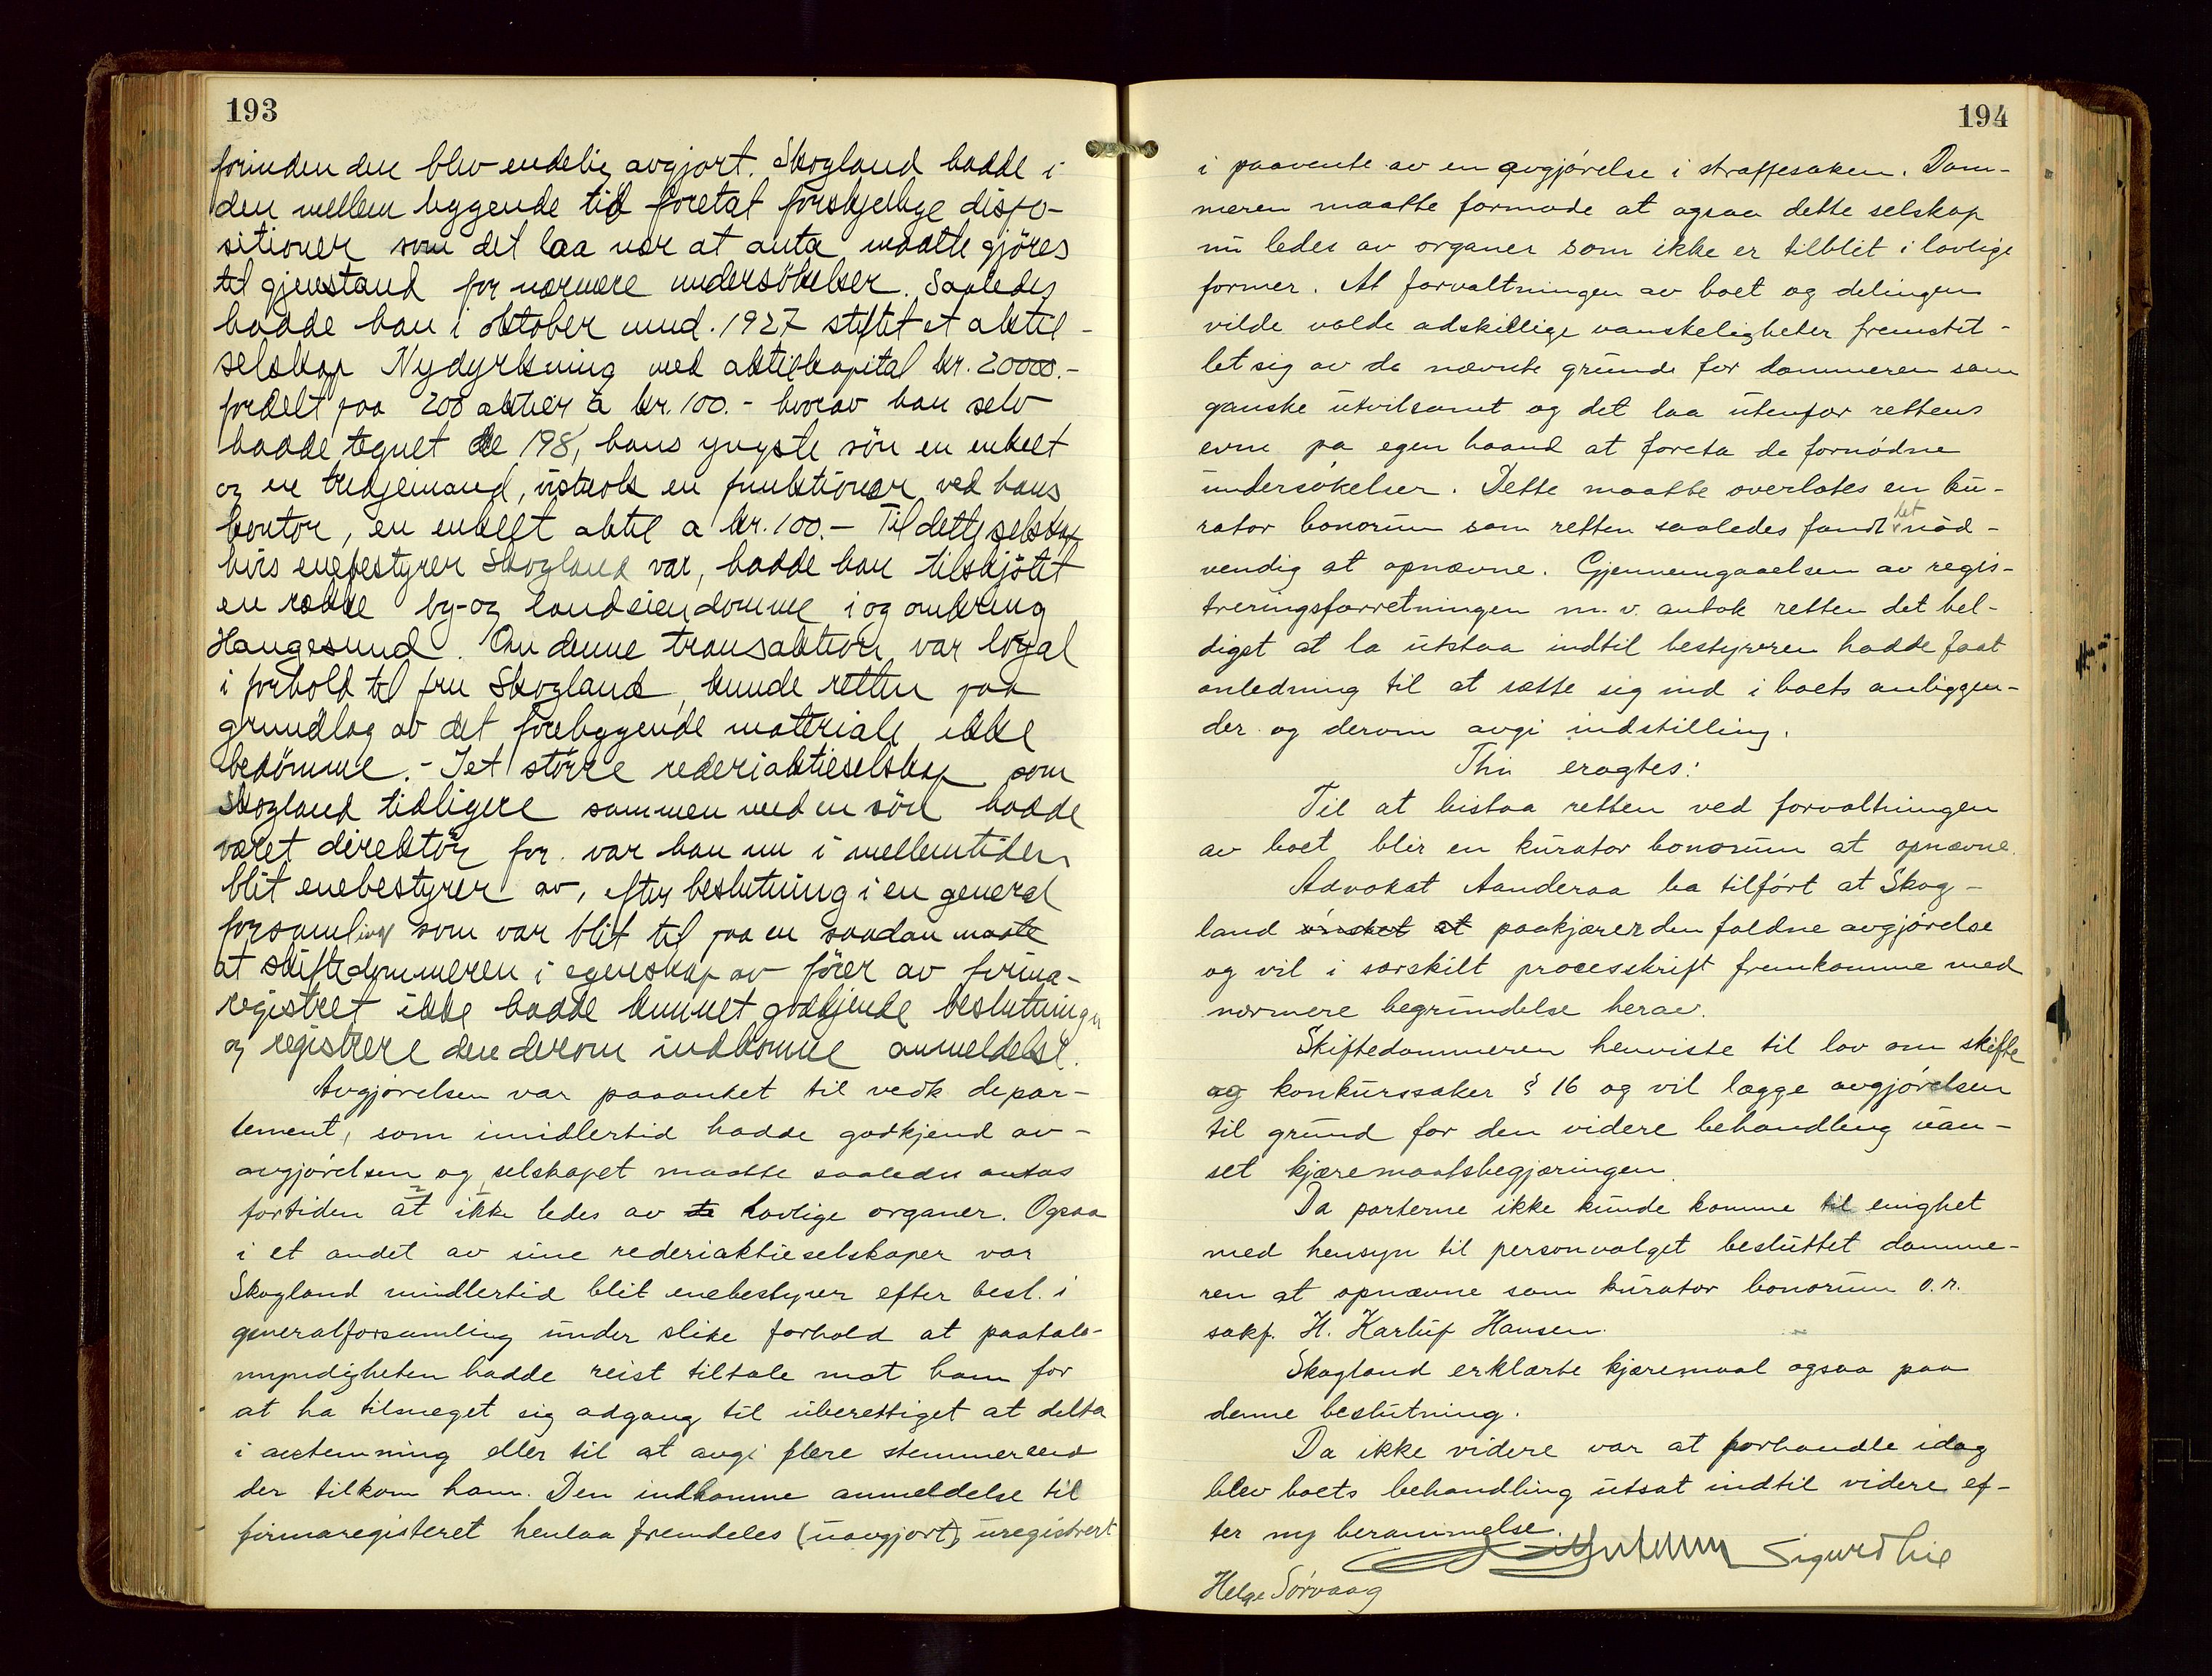 193
forinden den blev endelig avgjort. Skogland hadde i
den mellem liggende tid foretat forskjellige dispo-
sitioner som det laa nær at anta maatte gjöres
til gjenstand for nærmere undersökelser. Saaledes
hadde han i oktober mnd. 1927 stiftet et aktie-
selskap Nydyrkning med aktiekapital kr. 20000.-
fordelt paa 200 aktier a kr. 100.- hvorav han selv
hadde tegnet de 198, hans yngste sön en enkelt
og en tredjemand, vistnok en funktionær ved hans
kontor, en enkelt aktie a kr. 100.- Til dette selskap
hvis enebestyrer Skogland var, hadde han tilskjötet
en række by-og landeiendomme i og omkring
Haugesund. Om denne transaktion var loyal
i forhold til fru Skogland, kunde retten paa
grundlag av det foreliggende materiale ikke
bedömme.- I et större rederiaktieselskap som
Skogland tidligere sammen med en sön hadde
været direktör for. var han nu i mellemtiden
blit enebestyrer av, efter beslutning i en general
forsamling som var blit til paa en saadan maate
at skiftedommeren i egenskap av förer av firma-
registret ikke hadde kunnet godkjende beslutningen
og registrere den derom indkomne anmeldelse.
Avgjörelsen var paaanket til vedk depar-
tement, som imidlertid hadde godkjend av-
avgjörelsen og selskapet maatte saaledes antas
fortiden at ikke ledes av de lovlige organer. Ogsaa
i et andet av sine rederiaktieselskaper var
Skogland imidlertid blit enebestyrer efter besl. i
generalforsamling under slike forhold at paatale-
myndigheten hadde reist tiltale mot ham for
at ha tilsneget sig adgang til uberettiget at delta
i avstemning eller til at avgi flere stemmer end
der tilkom ham. Den indkomne anmeldelse til
firmaregisteret henlaa fremdeles (uavgjort), uregistrert
194
i paavente av en avgjörelse i straffesaken. Dom-
meren maatte formode at ogsaa dette selskap
nu ledes av organer som ikke er tilblit i lovlige
former. At forvaltningen av boet og delingen
vilde volde adskillige vanskeligheter fremstil-
let sig av de nævnte grunde for dommeren som
ganske utvilsomt og det laa utenfor rettens
evne pa egen haand at foreta de fornödne
undersökelser. Dette maatte overlates en ku-
rator bonorum som retten saaledes fandt det nöd-
vendig at opnævne. Gjennemgaaelsen av regis-
treringsforretningen m.v. antok retten det hel-
digst at la utstaa indtil bestyreren hadde faat
anledning til at sætte sig ind i boets anliggen-
der og derom avgi indstilling.
Thi eragtes:
Til at bistaa retten ved forvaltningen
av boet blir en kurator bonorum at opnævne.
Advokat Aanderaa ba tilfört at Skog-
land önsket at paakjærer den faldne avgjörelse
og vil i særskilt processkrift fremkomme med
nærmere begrundelse herav.
Skiftedommeren henviste til lov om skifte
og konkurssaker § 16 og vil lægge avgjörelsen
til grund for den videre behandling uan-
set kjæremaalsbegjæringen.
Da parterne ikke kunde komme til enighet
med hensyn til personvalget besluttet domme-
ren at opnævne som kurator bonorum o.r.
sakf. H. Karluf Hansen.
Skogland erklærte kjæremaal ogsaa paa
denne beslutning.
Da ikke videre var at forhandle idag
blev boets behandling utsat indtil videre ef-
ter ny berammelse.
Sigurd Lie
Helge Sörvaag